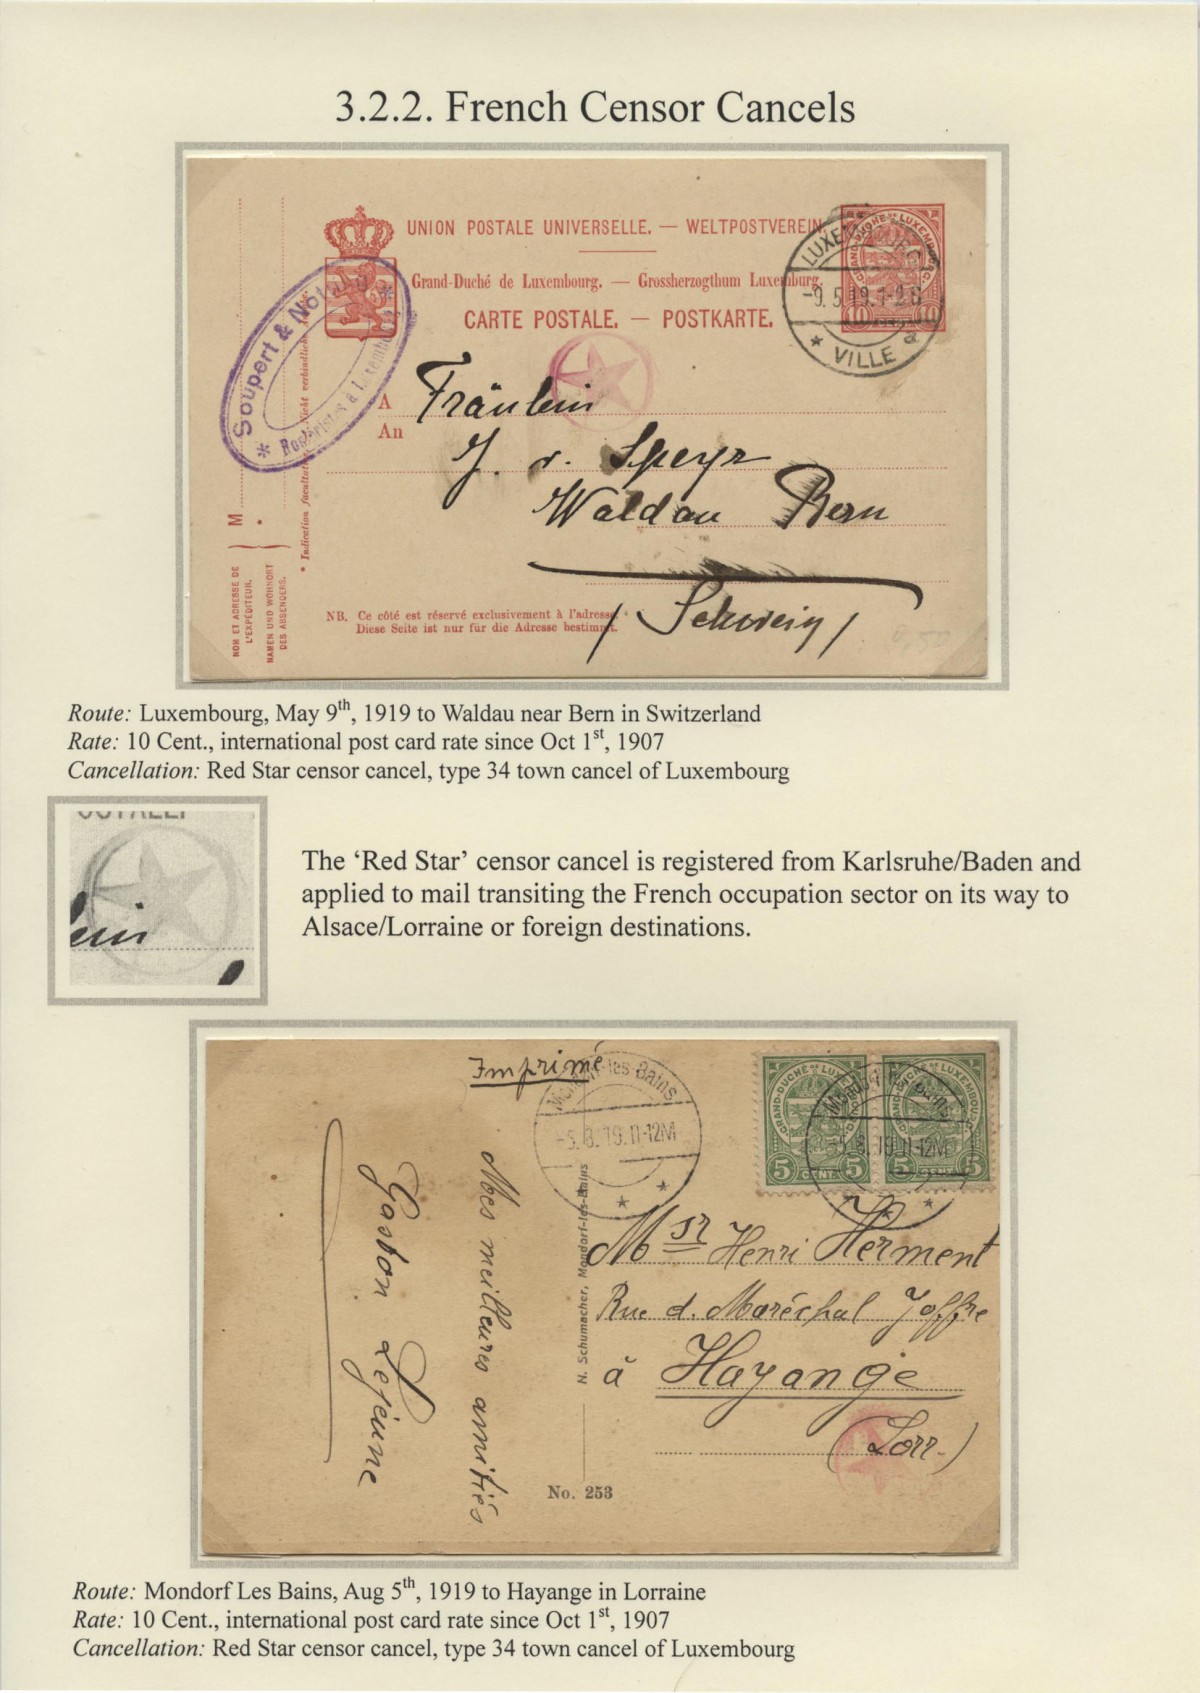 3.2.2. French Censor Cancels
UNION POSTALE UNIVERSELLE. — WELTPOSTVEREIN.
Grand-Duché de Luxembourg. — Grossherzogthum Luxemburg.
CARTE POSTALE. — POSTKARTE.
LUXEMBOURG
-9.5.19.1-2S
* VILLE
GRAND-DUCHÉ DE LUXEMBOURG
10 10
Soupert & Notting
* Rosiéristes à Luxembourg *
A
An
Fräulein
J. v. Speyr
Waldau Bern
/ Schweiz /
M
NOM ET ADRESSE DE
L'EXPÉDITEUR.
NAMEN UND WOHNORT
DES ABSENDERS.
* Indication facultative. — Nicht verbindlich.
NB. Ce côté est réservé exclusivement à l'adresse.
Diese Seite ist nur für die Adresse bestimmt.
Route: Luxembourg, May 9th, 1919 to Waldau near Bern in Switzerland
Rate: 10 Cent., international post card rate since Oct 1st, 1907
Cancellation: Red Star censor cancel, type 34 town cancel of Luxembourg
ein
The ‘Red Star’ censor cancel is registered from Karlsruhe/Baden and
applied to mail transiting the French occupation sector on its way to
Alsace/Lorraine or foreign destinations.
Imprimé
Mondorf-les-Bains
-5.8.19.11-12M
GRAND-DUCHÉ DE LUXEMBOURG
5 CENT. 5
GRAND-DUCHÉ DE LUXEMBOURG
5 CENT. 5
Mondorf-les-Bains
-5.8.19.11-12M
Mes meilleures amitiés
Gaston Lejeune
N. Schumacher, Mondorf-les-Bains
Msr Henri Herment
Rue d. Maréchal Joffre
à Hayange
(Lorr.)
No. 253
Route: Mondorf Les Bains, Aug 5th, 1919 to Hayange in Lorraine
Rate: 10 Cent., international post card rate since Oct 1st, 1907
Cancellation: Red Star censor cancel, type 34 town cancel of Luxembourg